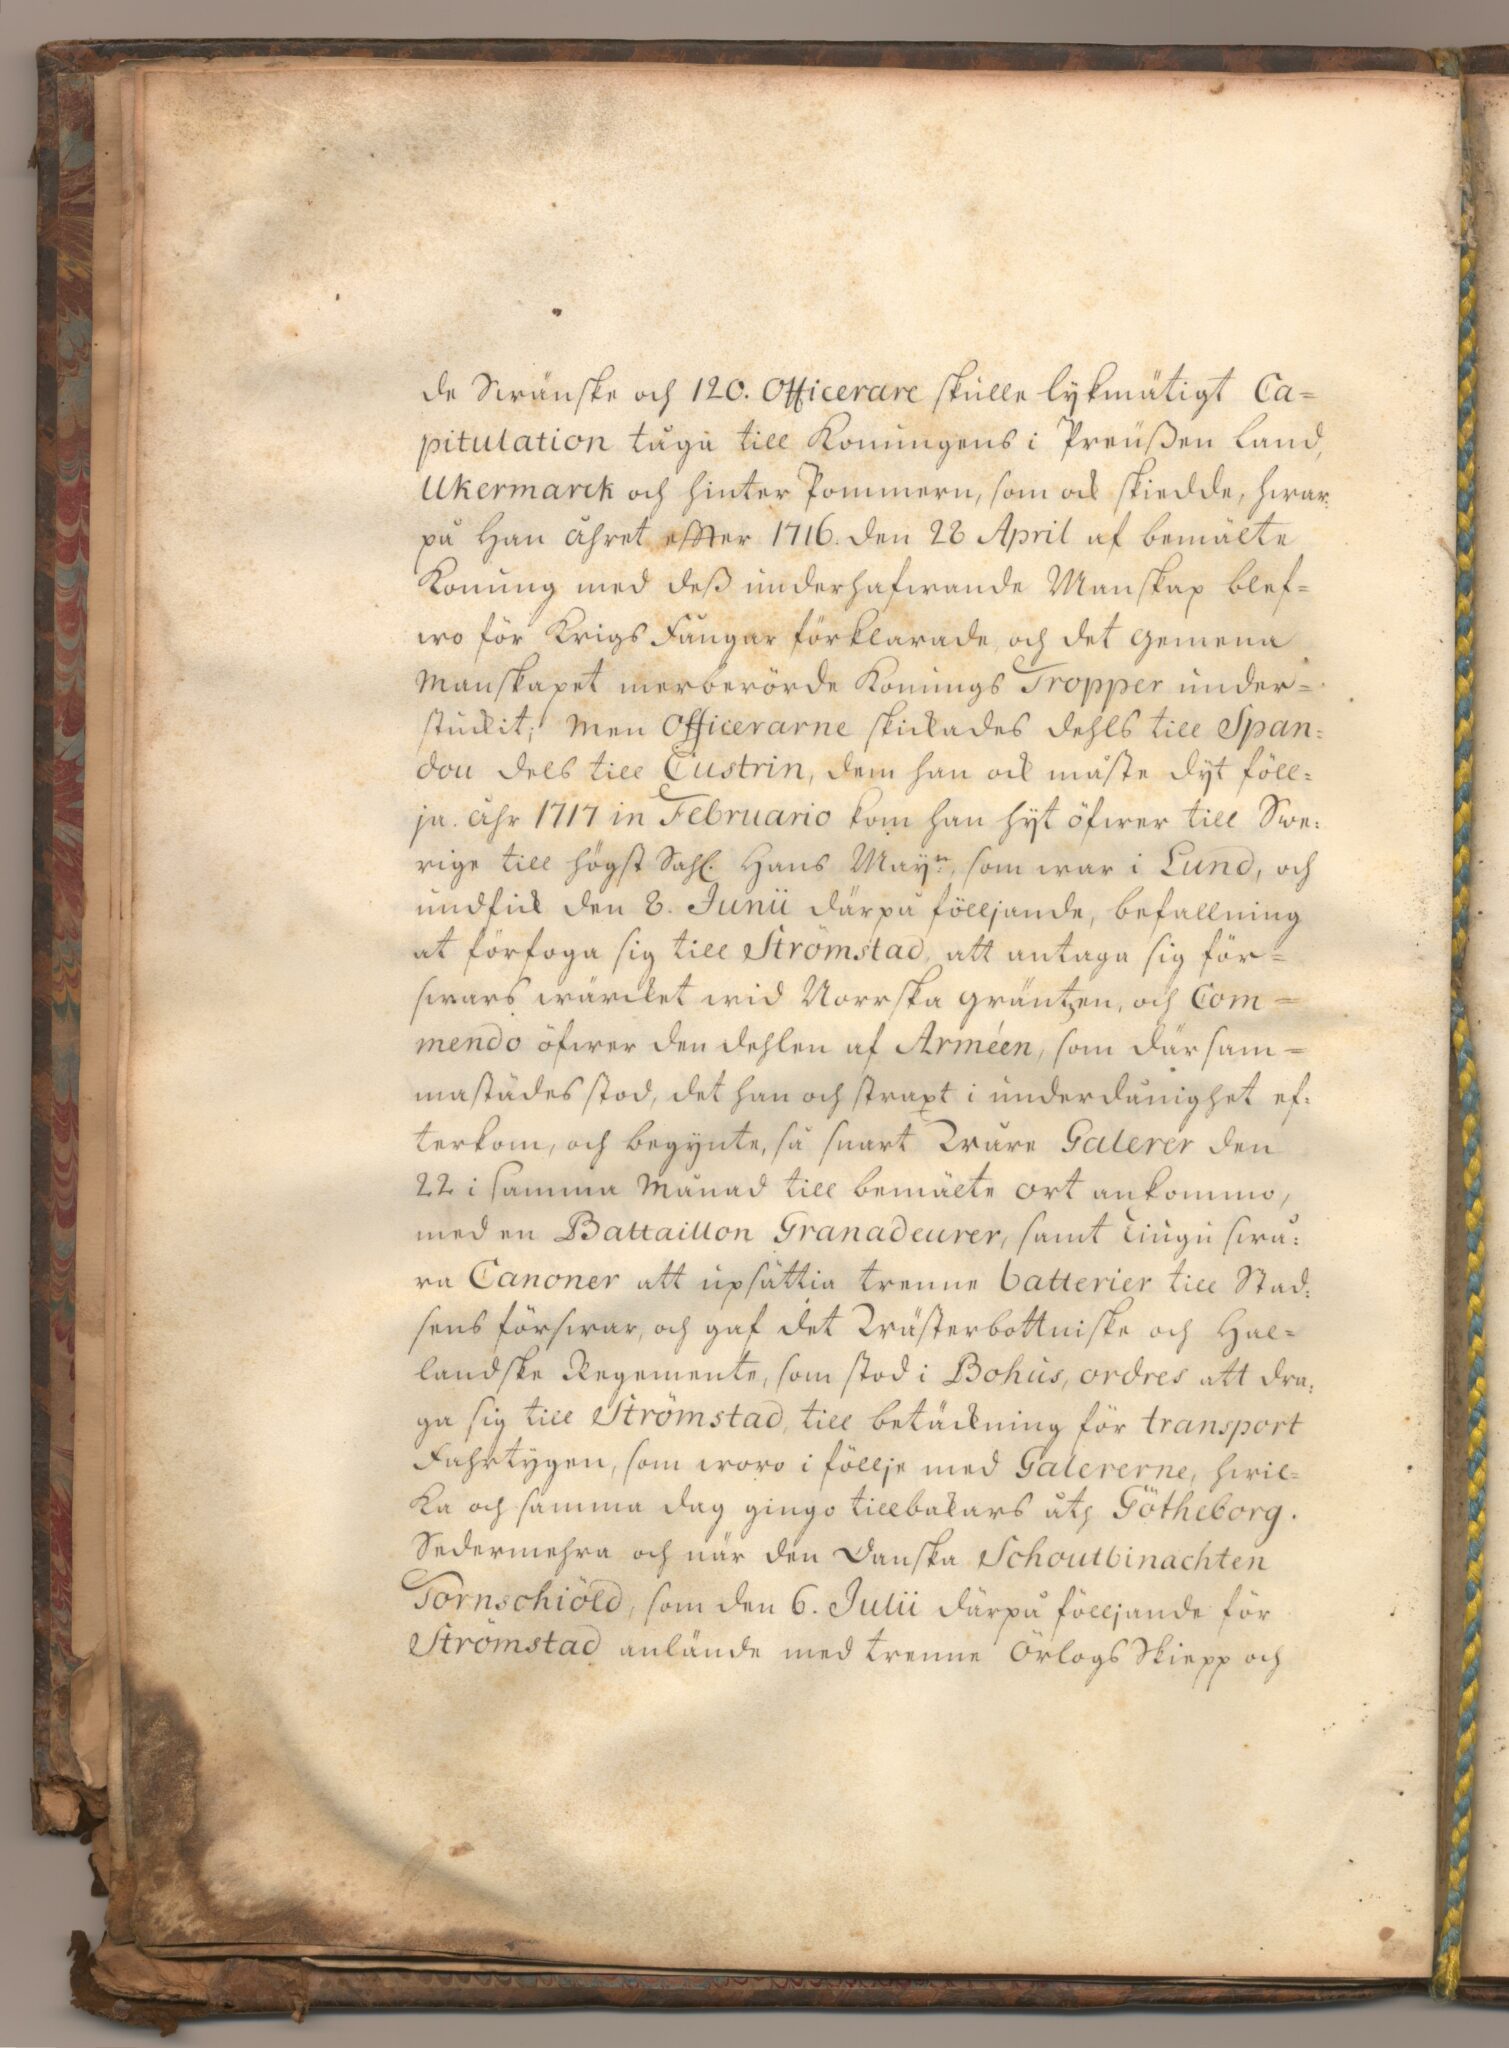 de Swänske och 120. Officerare skulle lykmätigt Ca=
pitulation tåga till Konungens i Preüßen Land,
Ukermarck och hinter Pommern, som ock skiedde, hwar=
på Han åhret effter 1716. den 28 April af bemälte
Konung med deß underhafwande Manskap blef=
wo för Krigs Fångar förklarade, och det gemena
Manskapet merberörde Konungs Tropper under=
stuckit; Men Officerarne skickades dehls till Span=
dou dels till Custrin, dem han ock måste dyt föll=
ja. åhr 1717 in Februario kom han hyt öfwer till Swe=
rige till högst Sahl. Hans Mayt:, som war i Lund, och
undfick den 8. Junii därpå följjande, befallning
at förfoga sig till Strömstad, att antaga sig för=
swars wärcket wid Norrska gräntzen, och Com=
mendo öfwer den dehlen af Arméen, som där sam=
mastädes stod, det han och straxt i underdånighet ef=
terkom, och begynte, så snart Wåre Galerer den
22 i samma Månad till bemälte ort ankommo,
med en Battaillon Granadeurer, samt Tiugu swå=
ra Canoner att upsättia trenne batterier till Stad=
sens förswar, och gaf det Wästerbottniske och Hal=
landske Regemente, som stod i Bohus, ordres att dra=
ga sig till Strömstad, till betäckning för transport
Fahrtygen, som woro i föllje med Galererne, hwil=
ka och samma dag gingo tillbakars åt Götheborg.
Sedermehra och när den Danska Schoutbinachten
Tornschiöld, som den 6. Julii därpå följjande för
Strömstad anlände med trenne Örlogs Skiepp och